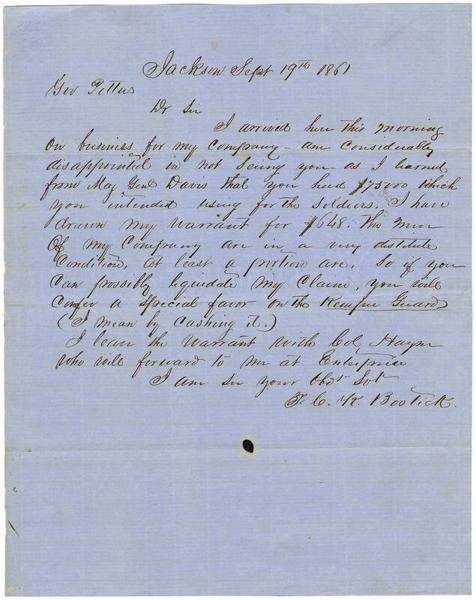 Jackson Sept 19th 1861
Gov Pettus
Dr Sir
I arrived here this morning
on business for my company - am considerably
disappointed in not seeing you as I learned
from Maj Genl Davis that you had $75000 which
you intended using for the soldiers. I have
drawn my warrant for $648. The men
of my Company are in a very distitute
Condition, at least a portion are. So if you
can possibly liquidate my Claim, you will
confer a special favor on the Kemper Guards
(I mean by cashing it.)
I leave the warrant with Col Hayne
who will forward to me at Enterprise
I am sir your Obdt Svt
T. C. K. Bostick.